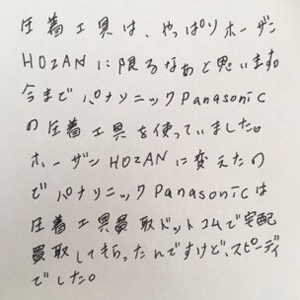 圧着工具は、やっぱりホーザン
HOZANに限るなあと思います。
今までパナソニックPanasonic
の圧着工具を使っていました。
ホーザンHOZANに変えたの
でパナソニックPanasonicは
圧着工具買取ドットコムで宅配
買取してもらったんですけど、スピーディ
でした。